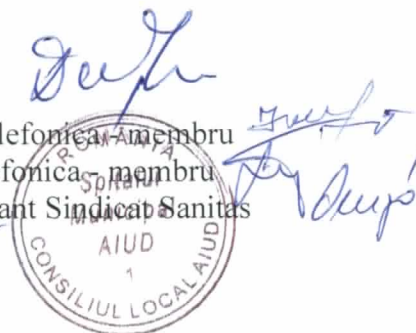 lefonica - membru
fonica - membru
ant Sindicat Sanitas
ROMÂNIA
Spitalul
Municipal
AIUD
1
CONSILIUL LOCAL AIUD